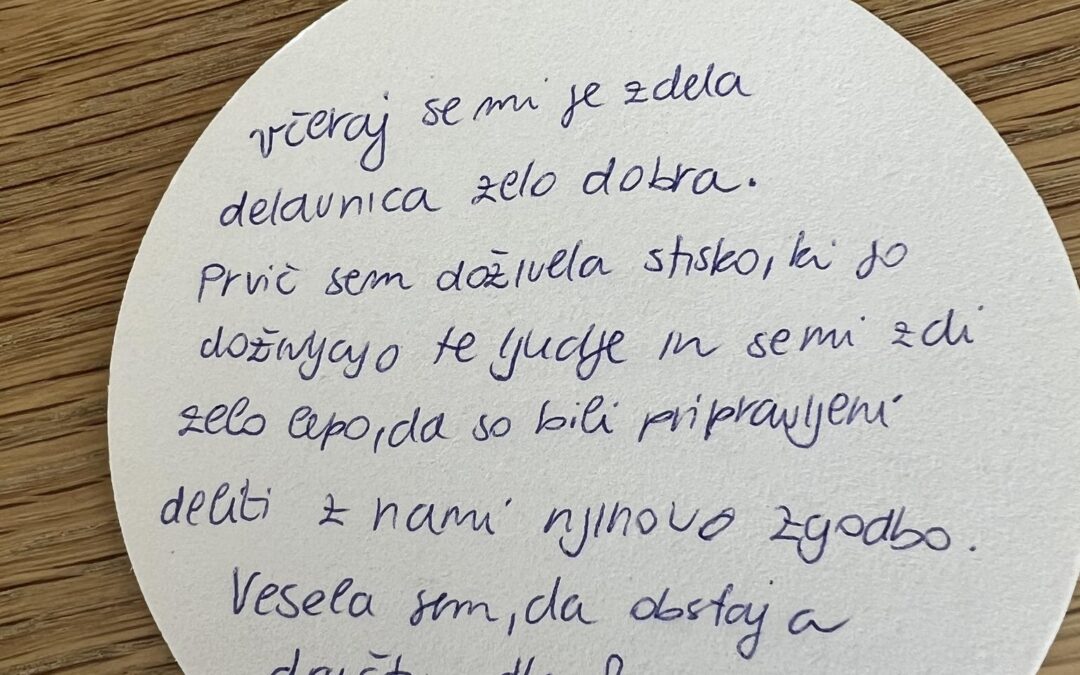 včeraj se mi je zdela
delavnica zelo dobra.
Prvič sem doživela stisko, ki jo
doživljajo te ljudje in se mi zdi
zelo lepo, da so bili pripravljeni
deliti z nami njihovo zgodbo.
Vesela sem, da obstaja